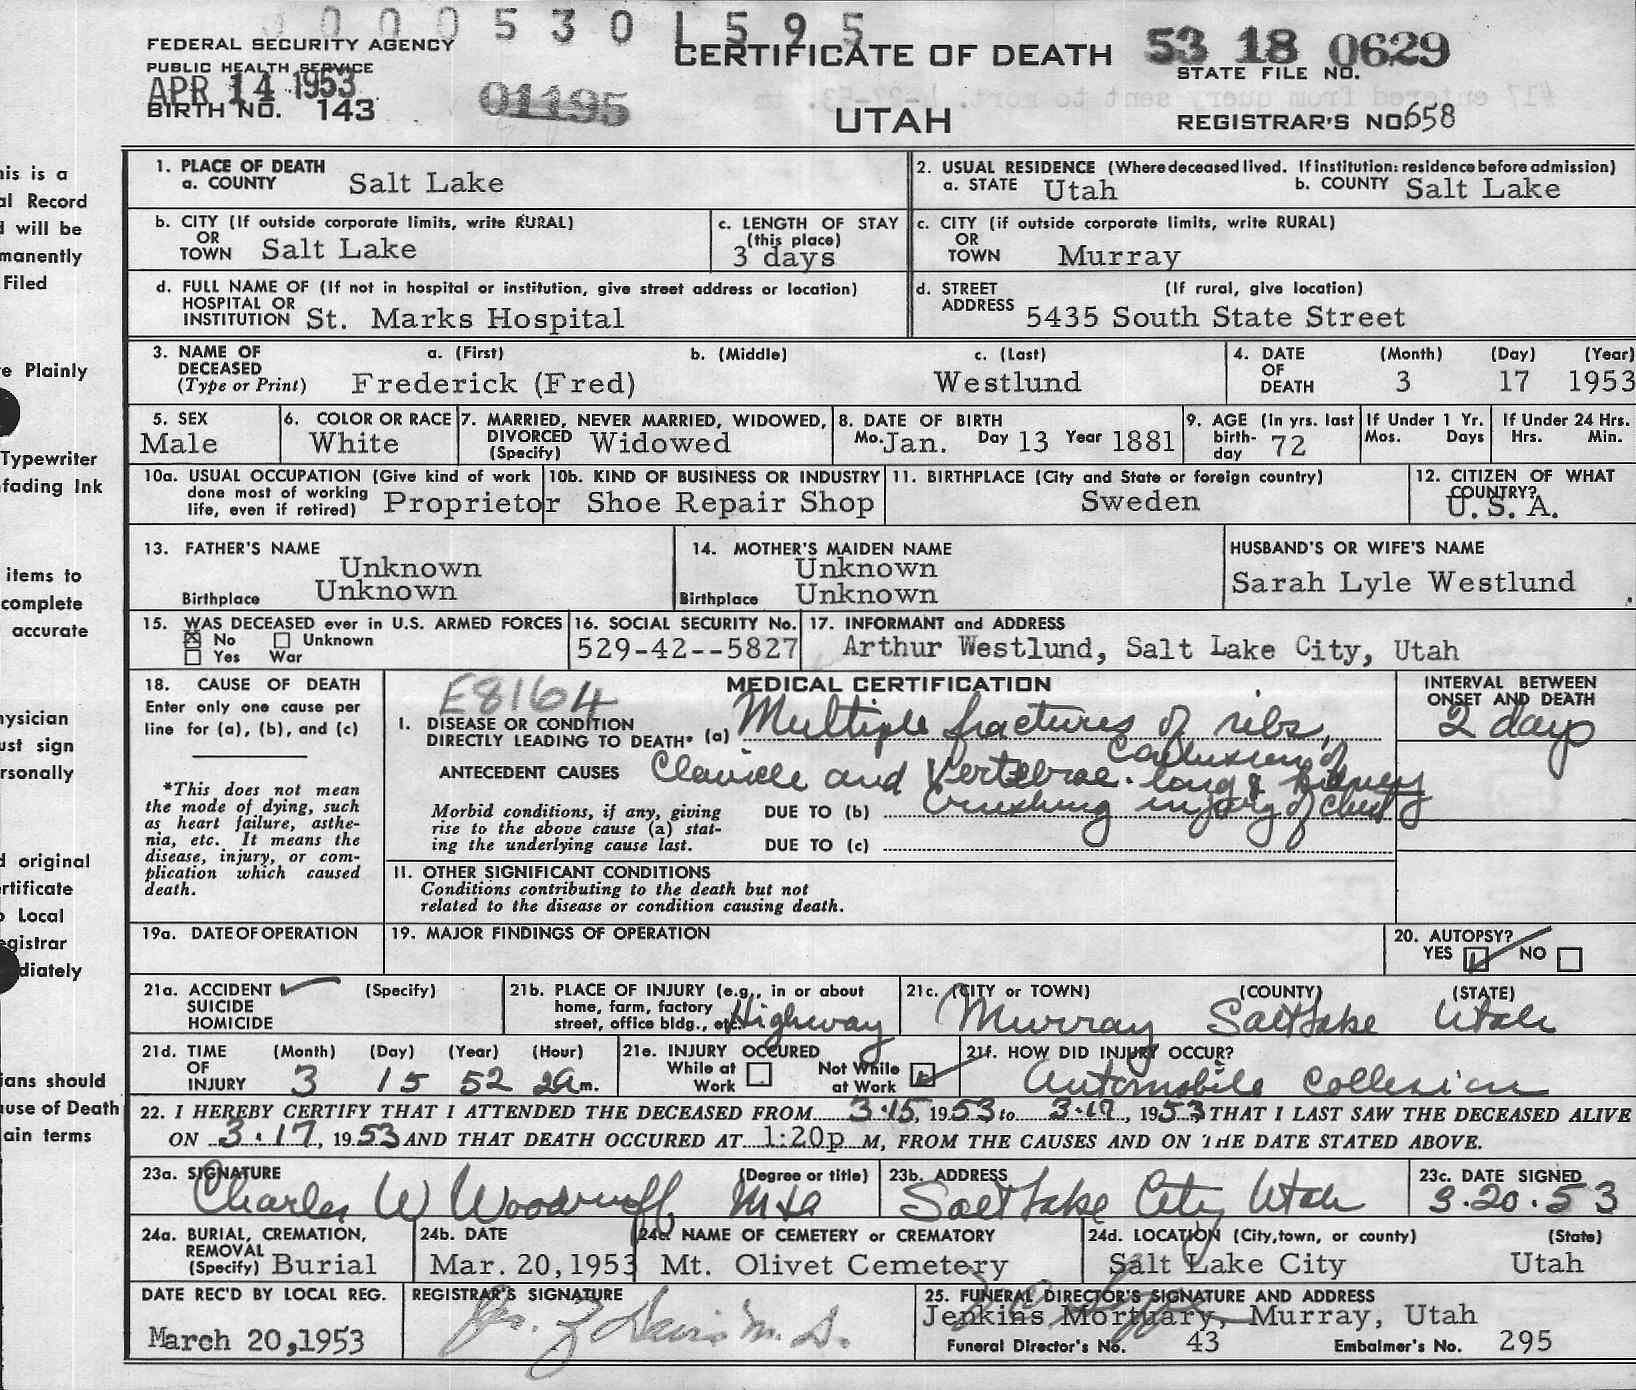 0 0 0 5 3 0 1 5 9 5
FEDERAL SECURITY AGENCY
PUBLIC HEALTH SERVICE
APR 14 1953
BIRTH NO. 143
01195
CERTIFICATE OF DEATH
UTAH
53 18 0629
STATE FILE NO.
REGISTRAR'S NO. 658
his is a
al Record
d will be
manently
Filed
e Plainly
Typewriter
fading Ink
items to
complete
accurate
hysician
ust sign
rsonally
d original
rtificate
o Local
egistrar
diately
ians should
use of Death
ain terms
1. PLACE OF DEATH
a. COUNTY Salt Lake
2. USUAL RESIDENCE (Where deceased lived. If institution: residence before admission)
a. STATE Utah b. COUNTY Salt Lake
b. CITY (If outside corporate limits, write RURAL)
OR
TOWN Salt Lake
c. LENGTH OF STAY
(this place)
3 days
c. CITY (if outside corporate limits, write RURAL)
OR
TOWN Murray
d. FULL NAME OF (If not in hospital or institution, give street address or location)
HOSPITAL OR
INSTITUTION St. Marks Hospital
d. STREET (If rural, give location)
ADDRESS 5435 South State Street
3. NAME OF DECEASED (Type or Print)
a. (First) b. (Middle) c. (Last)
Frederick (Fred) Westlund
4. DATE OF DEATH (Month) (Day) (Year)
3 17 1953
5. SEX
Male
6. COLOR OR RACE
White
7. MARRIED, NEVER MARRIED, WIDOWED,
DIVORCED (Specify) Widowed
8. DATE OF BIRTH
Mo. Jan. Day 13 Year 1881
9. AGE (In yrs. last birthday 72
If Under 1 Yr.
Mos. Days
If Under 24 Hrs.
Hrs. Min.
10a. USUAL OCCUPATION (Give kind of work
done most of working
life, even if retired) Proprietor
10b. KIND OF BUSINESS OR INDUSTRY
Shoe Repair Shop
11. BIRTHPLACE (City and State or foreign country)
Sweden
12. CITIZEN OF WHAT
COUNTRY?
U.S.A.
13. FATHER'S NAME
Unknown
Birthplace Unknown
14. MOTHER'S MAIDEN NAME
Unknown
Birthplace Unknown
HUSBAND'S OR WIFE'S NAME
Sarah Lyle Westlund
15. WAS DECEASED ever in U.S. ARMED FORCES
No Unknown
Yes War
16. SOCIAL SECURITY No.
529-42--5827
17. INFORMANT and ADDRESS
Arthur Westlund, Salt Lake City, Utah
18. CAUSE OF DEATH
Enter only one cause per
line for (a), (b), and (c)
*This does not mean
the mode of dying, such
as heart failure, asthe-
nia, etc. It means the
disease, injury, or com-
plication which caused
death.
E8164
MEDICAL CERTIFICATION
I. DISEASE OR CONDITION
DIRECTLY LEADING TO DEATH* (a) Multiple fractures of ribs,
ANTECEDENT CAUSES Clavicle and Vertebrae. Contusion of lung & kidney
Morbid conditions, if any, giving
rise to the above cause (a) stat-
ing the underlying cause last.
DUE TO (b) Crushing injury of chest
DUE TO (c)
INTERVAL BETWEEN
ONSET AND DEATH
2 days
II. OTHER SIGNIFICANT CONDITIONS
Conditions contributing to the death but not
related to the disease or condition causing death.
19a. DATE OF OPERATION
19. MAJOR FINDINGS OF OPERATION
20. AUTOPSY?
YES NO
21a. ACCIDENT (Specify)
SUICIDE
HOMICIDE
21b. PLACE OF INJURY (e.g., in or about
home, farm, factory
street, office bldg., etc. Highway
21c. (CITY or TOWN) (COUNTY) (STATE)
Murray Salt Lake Utah
21d. TIME OF INJURY (Month) (Day) (Year) (Hour)
3 15 52 2a m.
21e. INJURY OCCURED
While at Work Not While at Work
21f. HOW DID INJURY OCCUR?
Automobile Collesian
22. I HEREBY CERTIFY THAT I ATTENDED THE DECEASED FROM 3.15, 1953 to 3.17, 1953 THAT I LAST SAW THE DECEASED ALIVE
ON 3.17, 1953 AND THAT DEATH OCCURED AT 1:20p M, FROM THE CAUSES AND ON THE DATE STATED ABOVE.
23a. SIGNATURE (Degree or title)
Charles W Woodruff
23b. ADDRESS
Salt Lake City Utah
23c. DATE SIGNED
3.20.53
24a. BURIAL, CREMATION,
REMOVAL
(Specify) Burial
24b. DATE
Mar. 20,1953
24c. NAME OF CEMETERY OR CREMATORY
Mt. Olivet Cemetery
24d. LOCATION (City, town, or county) (State)
Salt Lake City Utah
DATE REC'D BY LOCAL REG.
March 20,1953
REGISTRAR'S SIGNATURE
M.D.
25. FUNERAL DIRECTOR'S SIGNATURE AND ADDRESS
Jenkins Mortuary, Murray, Utah
Funeral Director's No. 43 Embalmer's No. 295